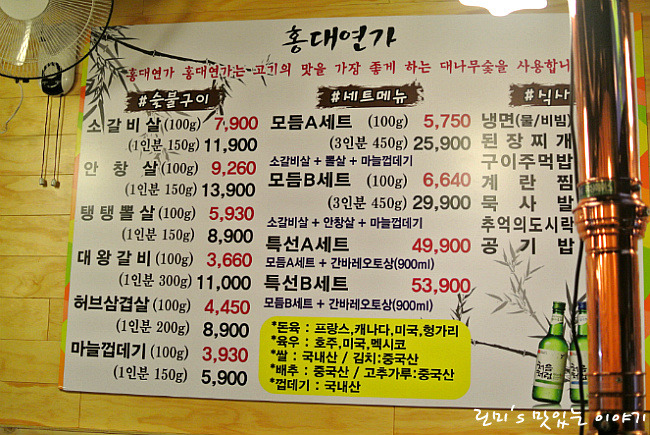 홍대연가
홍대연가 홍대연가는 고기의 맛을 가장 좋게 하는 대나무숯을 사용합니
#숯불구이
소갈비살 (100g) 7,900
(1인분 150g) 11,900
안창살 (100g) 9,260
(1인분 150g) 13,900
탱탱뽈살 (100g) 5,930
(1인분 150g) 8,900
대왕갈비 (100g) 3,660
(1인분 300g) 11,000
허브삼겹살 (100g) 4,450
(1인분 200g) 8,900
마늘껍데기 (100g) 3,930
(1인분 150g) 5,900
#세트메뉴
모듬A세트 (100g) 5,750
(3인분 450g) 25,900
소갈비살 + 뽈살 + 마늘껍데기
모듬B세트 (100g) 6,640
(3인분 450g) 29,900
소갈비살 + 안창살 + 마늘껍데기
특선A세트 49,900
모듬A세트 + 간바레오토상(900ml)
특선B세트 53,900
모듬B세트 + 간바레오토상(900ml)
*돈육 : 프랑스,캐나다,미국,헝가리
*육우 : 호주,미국,멕시코
*쌀 : 국내산 / 김치:중국산
*배추 : 중국산 / 고추가루:중국산
*껍데기 : 국내산
#식사
냉면(물/비빔)
된장찌개
구이주먹밥
계란찜
묵사발
추억의도시락
공기밥
처음처럼
린미's 맛있는 이야기